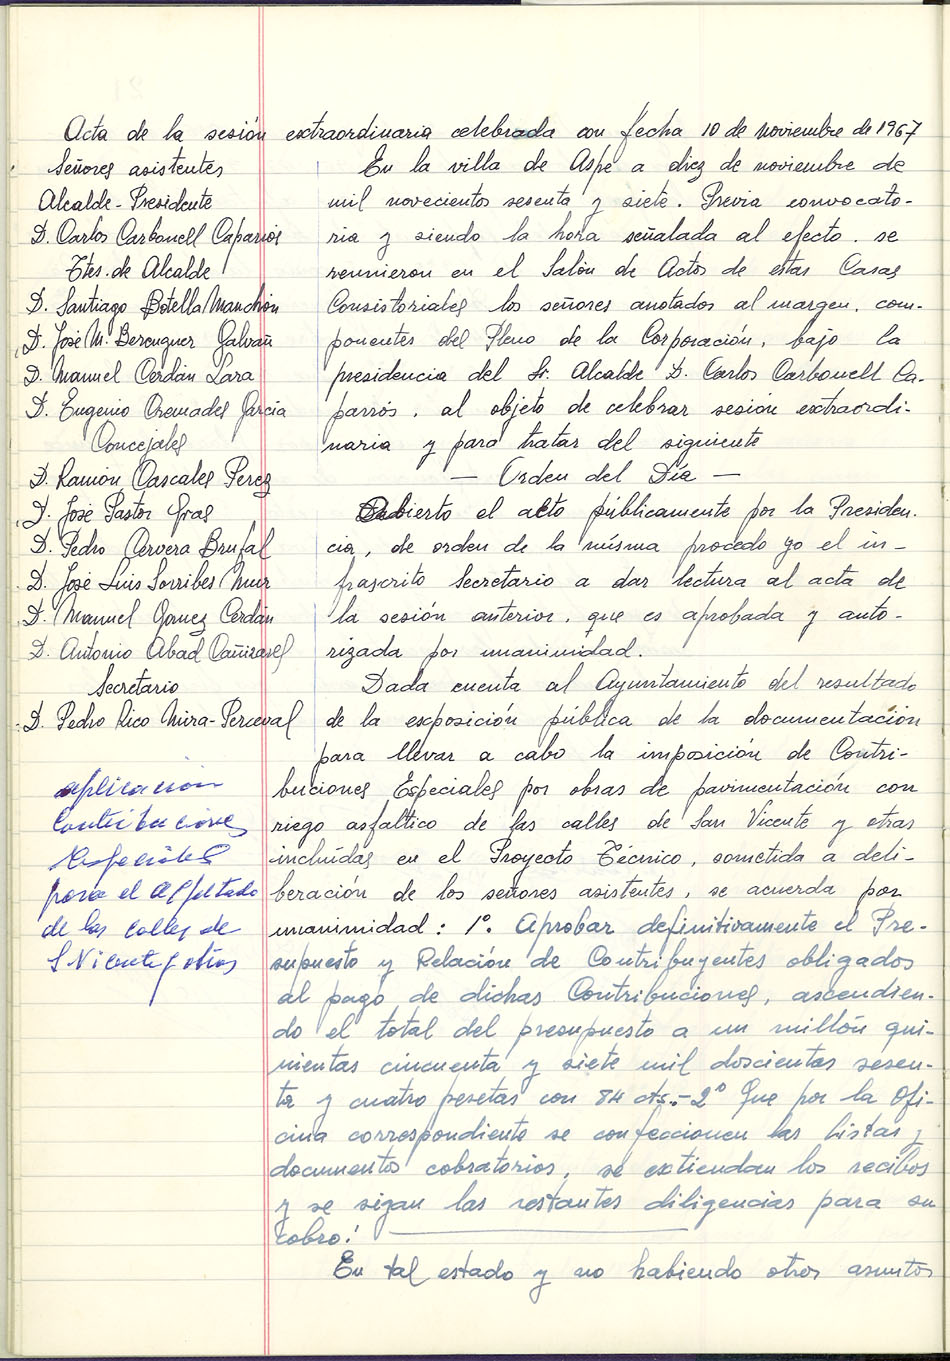 Acta de la sesión extraordinaria celebrada con fecha 10 de noviembre de 1967
Señores asistentes
Alcalde-Presidente
D. Carlos Carbonell Caparrós
Ttes. de Alcalde
D. Santiago Botella Manchón
D. José M. Berenguer Galvañ
D. Manuel Cerdán Lara
D. Eugenio Cremades Garcia
Concejales
D. Ramón Cascales Perez
D. José Pastor Gras
D. Pedro Cervera Brufal
D. José Luis Sorribes Mur
D. Manuel Gomez Cerdán
D. Antonio Abad Cañizares
Secretario
D. Pedro Rico Mira-Perceval
aplicación
Contribuciones
Especiales
para el asfaltado
de las calles de
S Vicente y otros
En la villa de Aspe a diez de noviembre de
mil novecientos sesenta y siete. Previa convocato-
ria y siendo la hora señalada al efecto. se
reunieron en el Salón de Actos de estas Casas
Consistoriales los señores anotados al margen, com-
ponentes del Pleno de la Corporación, bajo la
presidencia del Sr. Alcalde D. Carlos Carbonell Ca-
parrós, al objeto de celebrar sesión extraordi-
naria y para tratar del siguiente
— Orden del Día —
Abierto el acto públicamente por la Presiden.
cia, de orden de la misma procedo yo el in-
frascrito Secretario a dar lectura al acta de
la sesión anterior, que es aprobada y auto-
rizada por unanimidad.
Dada cuenta al Ayuntamiento del resultado
de la exposición pública de la documentación
para llevar a cabo la imposición de Contri-
buciones Especiales por obras de pavimentación con
riego asfaltico de las calles de San Vicente y otras
incluídas en el Proyecto Técnico, sometida a deli-
beración de los señores asistentes, se acuerda por
unanimidad: 1º. Aprobar definitivamente el Pre-
supuesto y Relación de Contribuyentes obligados
al pago de dichas Contribuciones, ascendien-
do el total del presupuesto a un millón qui-
nientas cincuenta y siete mil doscientas sesen-
ta y cuatro pesetas con 84 cts.-2º Que por la Ofi-
cina correspondiente se confeccionen las listas y
documentos cobratorios, se extiendan los recibos
y se sigan las restantes diligencias para su
cobro.
En tal estado y no habiendo otros asuntos